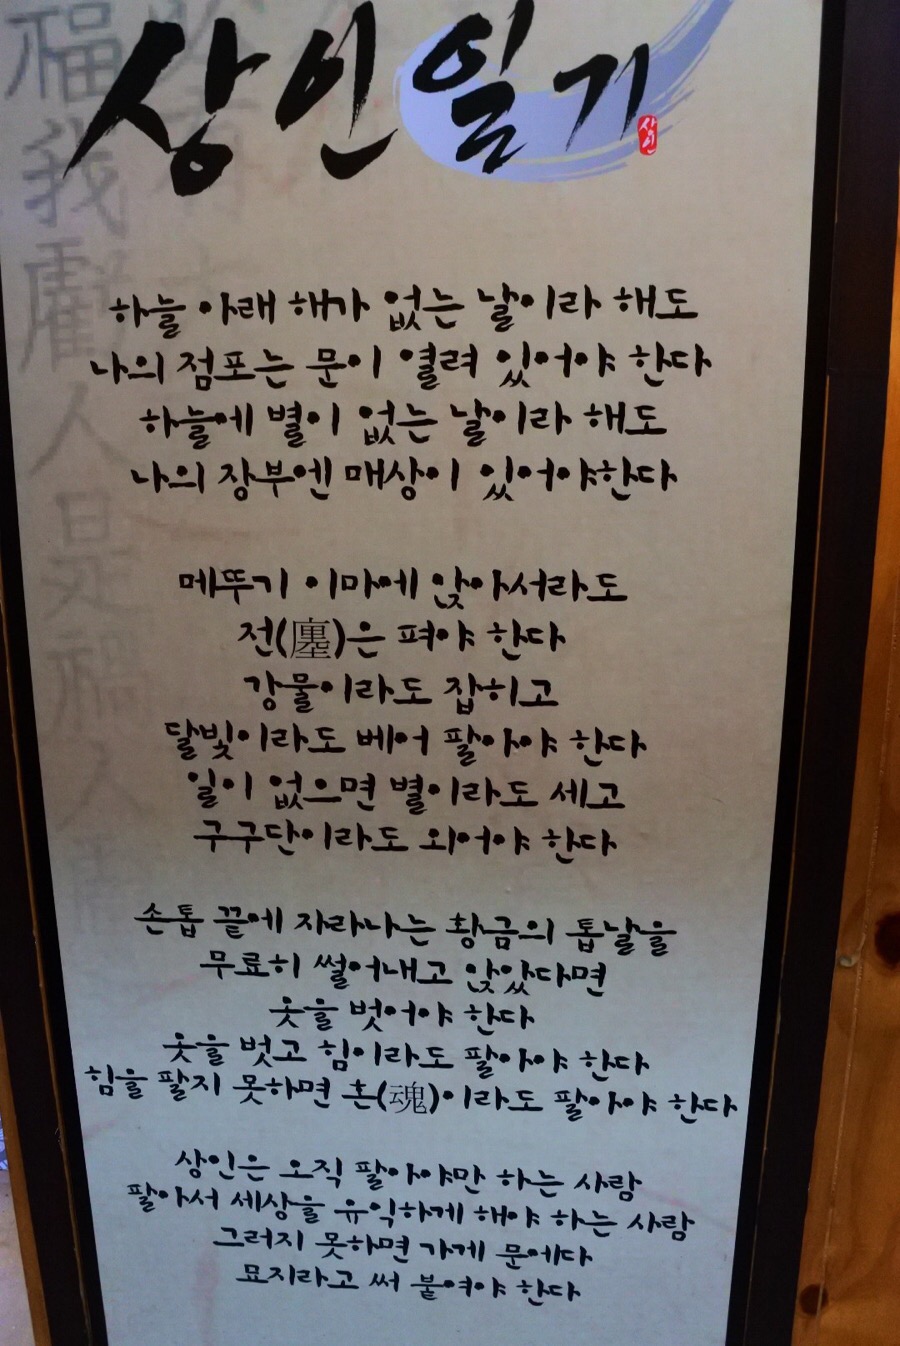 상인일기
상인
하늘 아래 해가 없는 날이라 해도
나의 점포는 문이 열려 있어야 한다
하늘에 별이 없는 날이라 해도
나의 장부엔 매상이 있어야한다
메뚜기 이마에 앉아서라도
전(廛)은 펴야 한다
강물이라도 잡히고
달빛이라도 베어 팔아야 한다
일이 없으면 별이라도 세고
구구단이라도 외어야 한다
손톱 끝에 자라나는 황금의 톱날을
무료히 썰어내고 앉았다면
옷을 벗어야 한다
옷을 벗고 힘이라도 팔아야 한다
힘을 팔지 못하면 혼(魂)이라도 팔아야 한다
상인은 오직 팔아야만 하는 사람
팔아서 세상을 유익하게 해야 하는 사람
그러지 못하면 가게 문에다
묘지라고 써 붙여야 한다
福我虧人是禍人